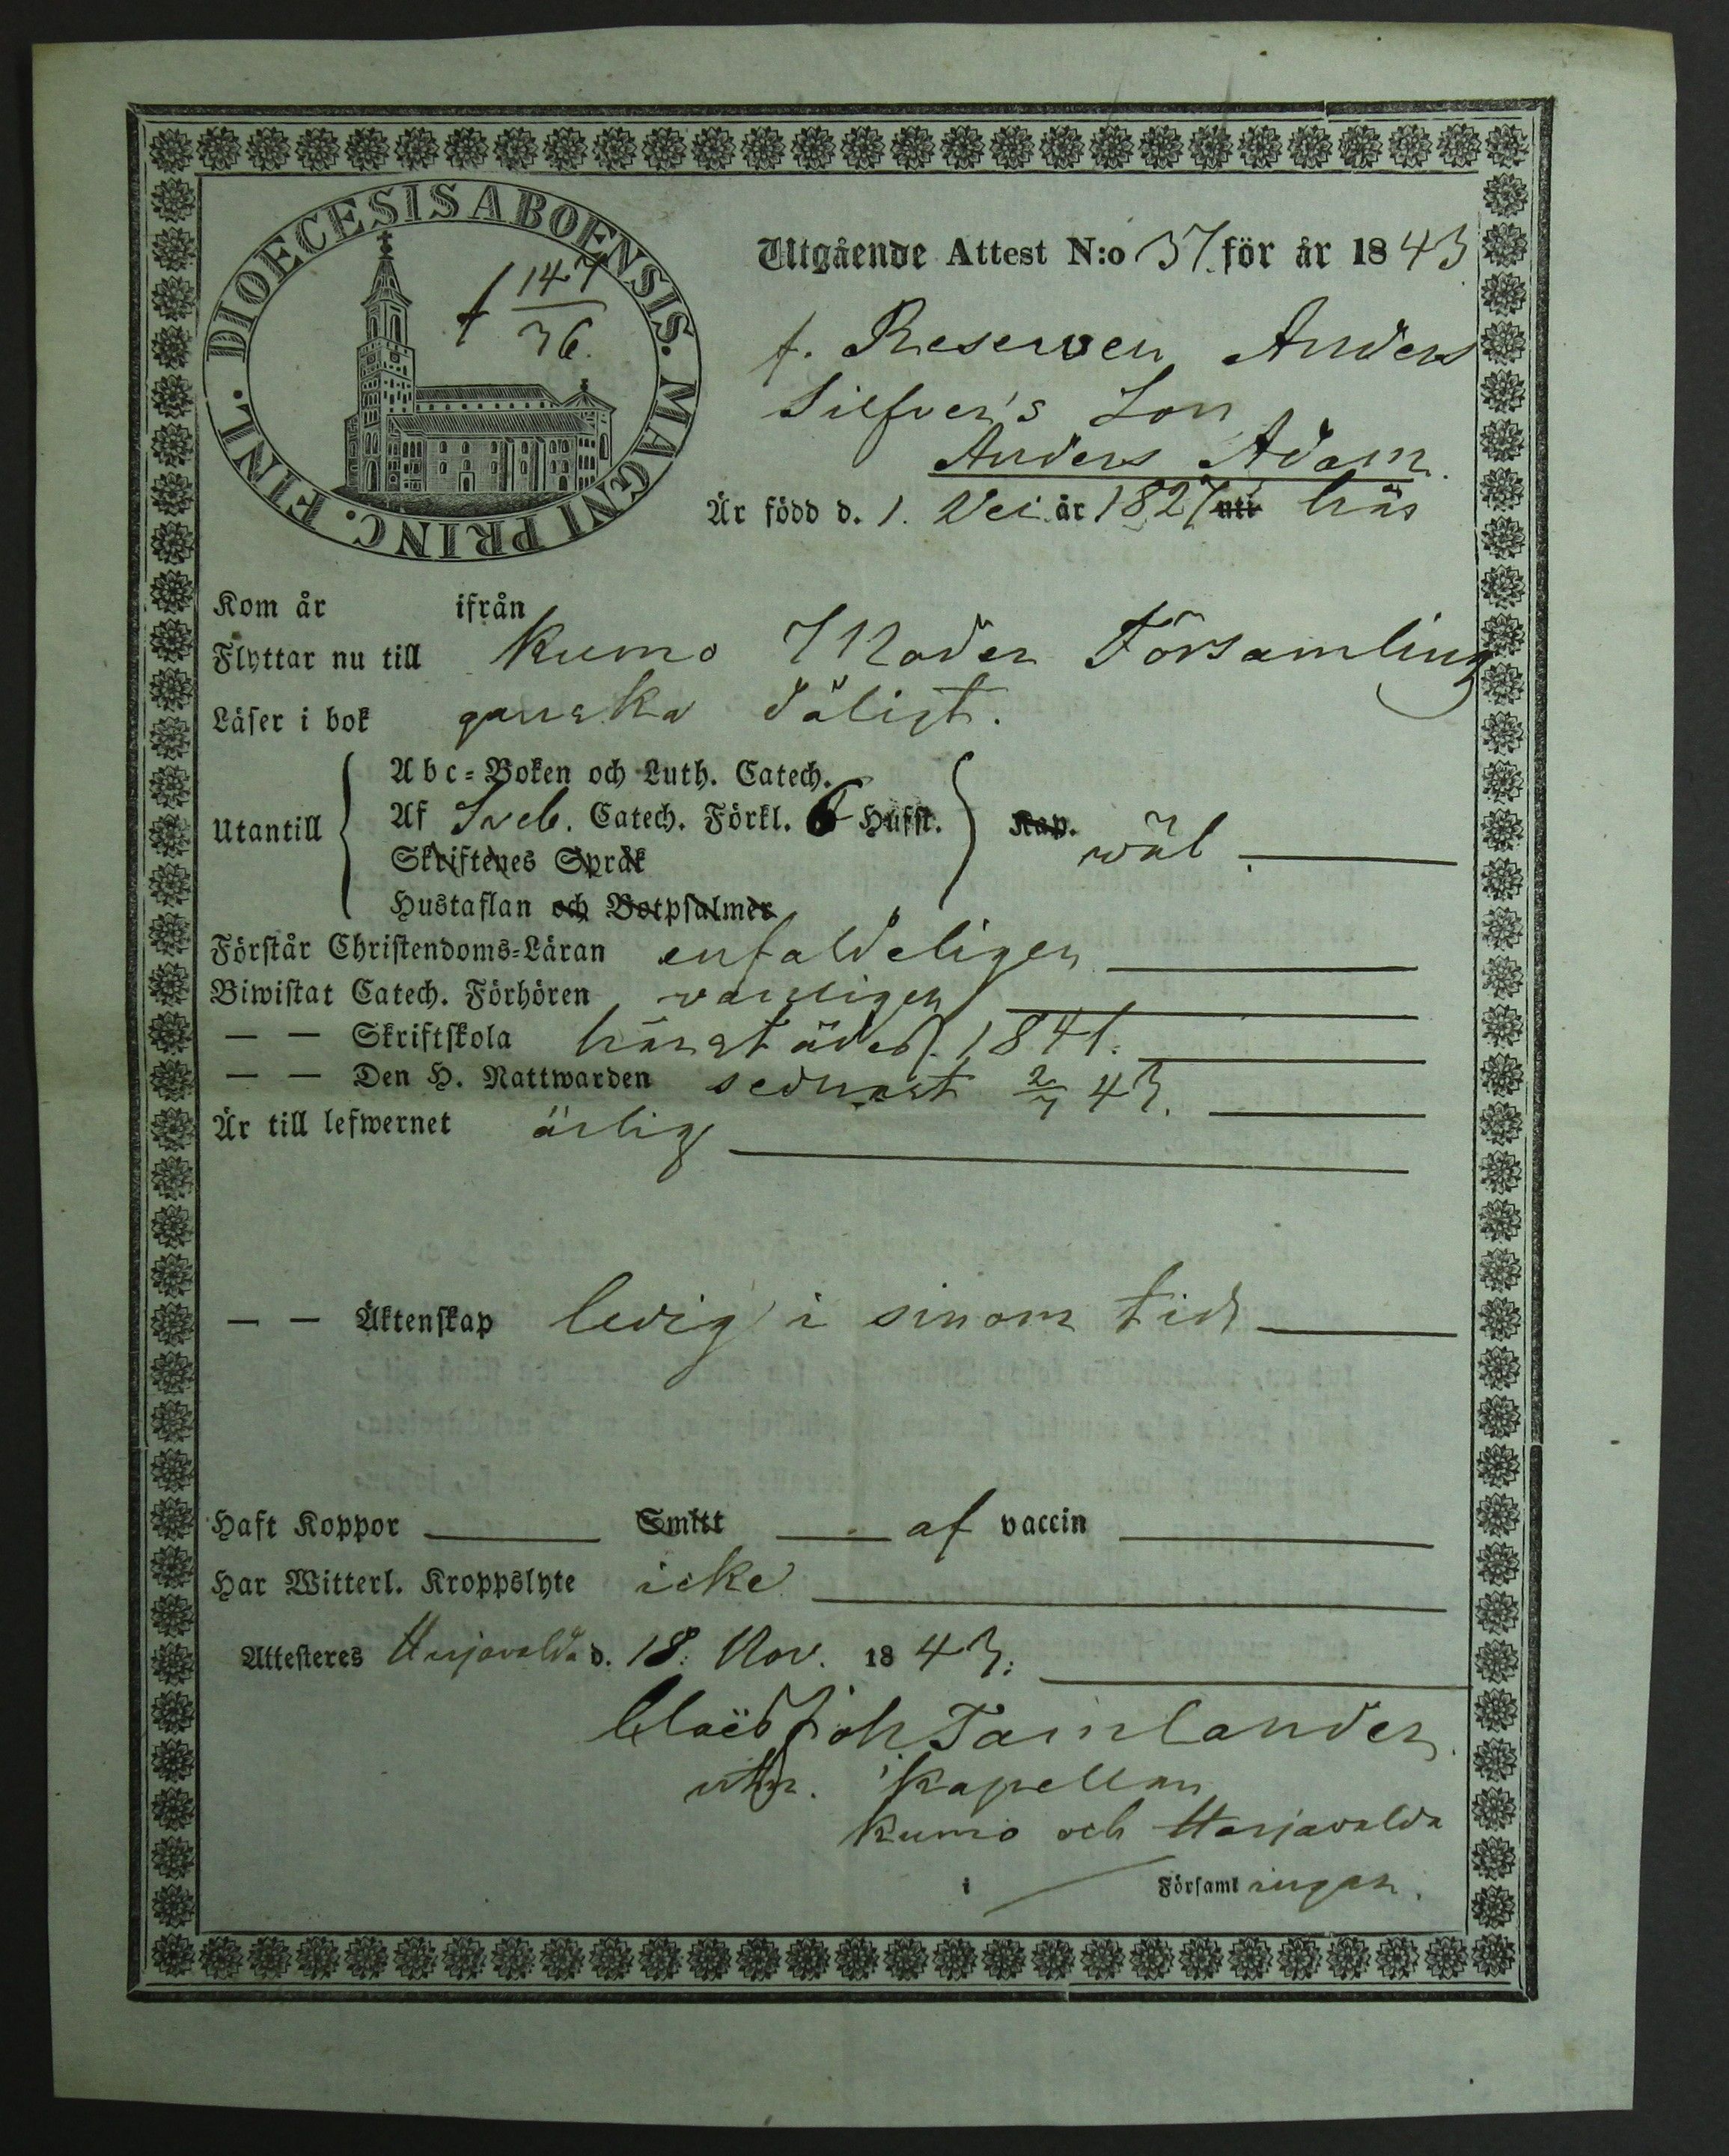 DIOECESIS ABOENSIS. MAGNI PRINC. FINL.
f 147/36.
Utgående Attest N:o 37. för år 1843
f. Reserven Anders
Silfver's Son
Anders Adam.
Är född d. 1. Dec. år 1827 uti här
Kom år ifrån
Flyttar nu till Kumo Moder Församling
Läser i bok ganska dåligt.
Utantill
Abc-Boken och Luth. Catech.
Af Sveb. Catech. Förkl. 6 Hufst.
Skriftenes Språk
Hustaflan och Botpsalmer
Kap. wäl
Förstår Christendoms-Läran enfaldeligen
Biwistat Catech. Förhören vanligen
— — Skriftskola härstädes 1841.
— — Den H. Nattwarden sednast 2/7 43.
Är till lefwernet ärlig
— — Äktenskap ledig i sinom tid
Haft Koppor Smitt af vaccin
Har Witterl. Kroppslyte icke
Attesteres Harjavalda d. 18. Nov. 1843.
Claës Joh Tamlander
Kapellan
Kumo och Harjavalda
i Församlingar.